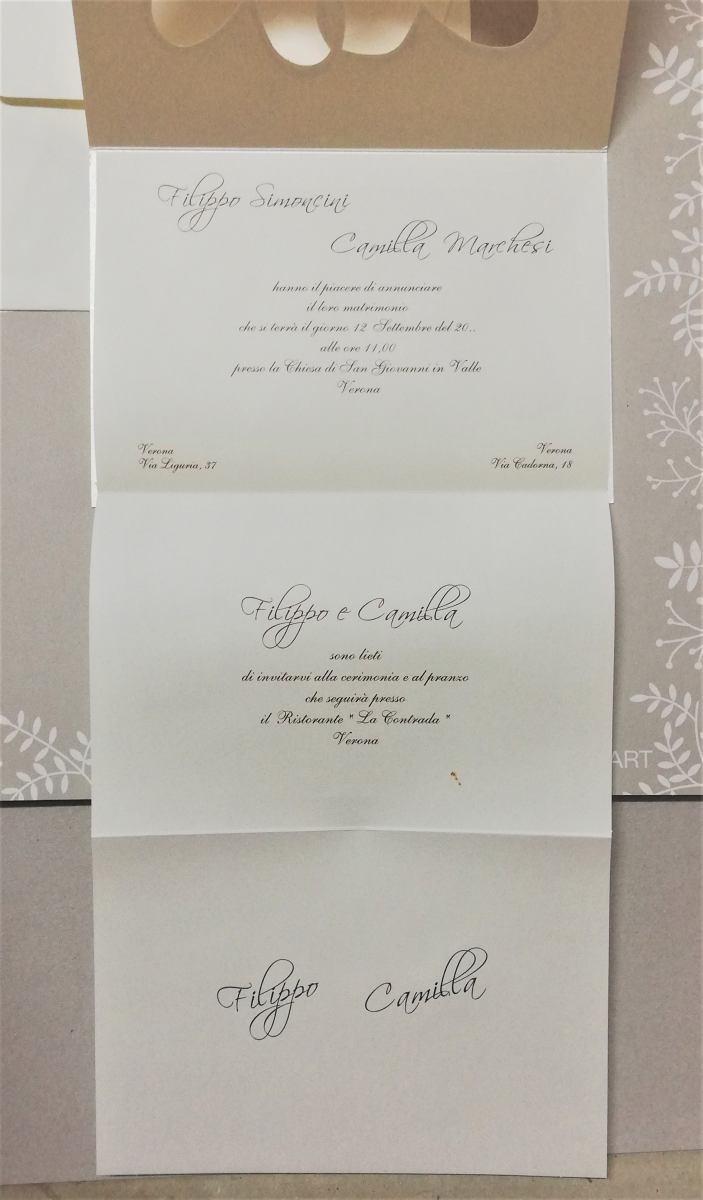 Filippo Simoncini
Camilla Marchesi
hanno il piacere di annunciare
il loro matrimonio
che si terrà il giorno 12 Settembre del 20..
alle ore 11,00
presso la Chiesa di San Giovanni in Valle
Verona
Verona
Via Liguria, 37
Verona
Via Cadorna, 18
Filippo e Camilla
sono lieti
di invitarvi alla cerimonia e al pranzo
che seguirà presso
il Ristorante " La Contrada "
Verona
ART
Filippo Camilla